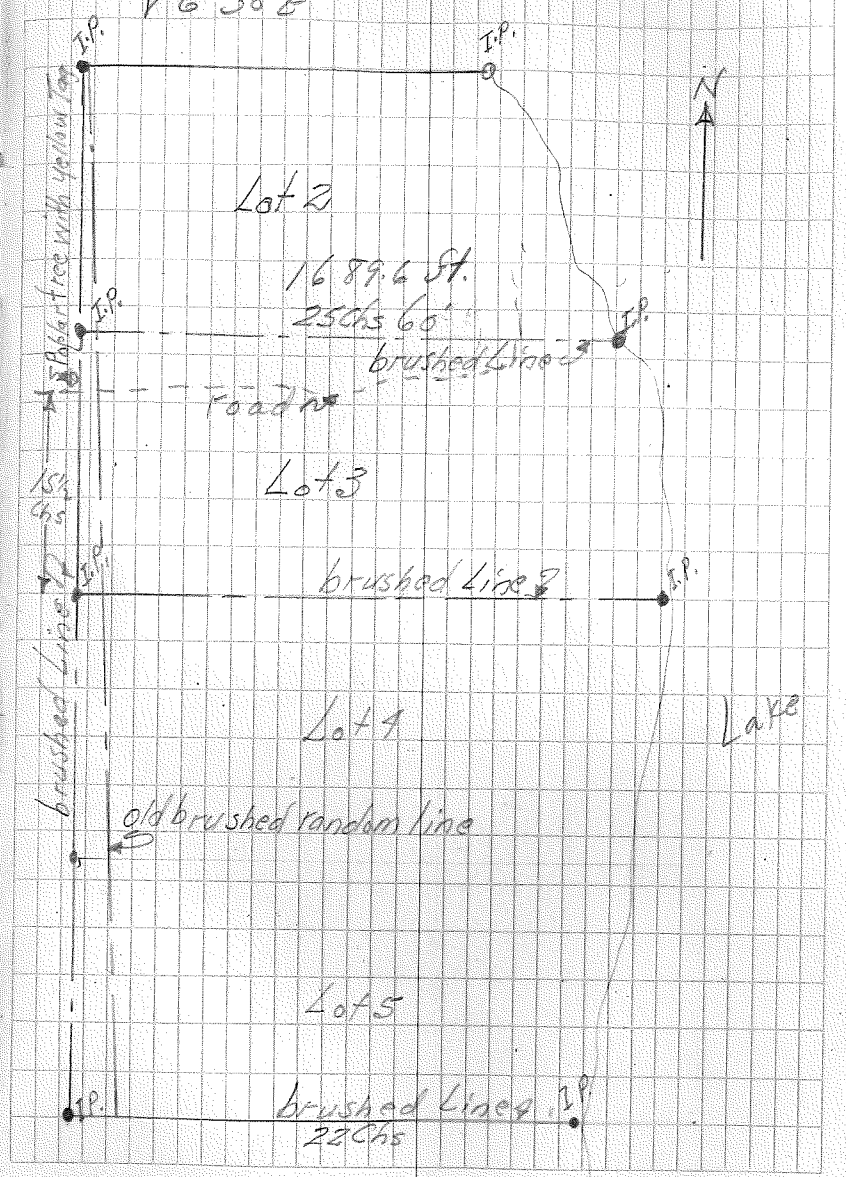 I.P.
I.P.
N
Poplar tree with yellow Tag
Lot 2
1689.6 ft.
25Chs 60'
I.P.
I.P.
brushed Line
road
15½
Chs
Lot 3
I.P.
brushed Line
I.P.
brushed Line
Lot 4
Lake
old brushed random line
Lot 5
I.P.
brushed Line
I.P.
22Chs